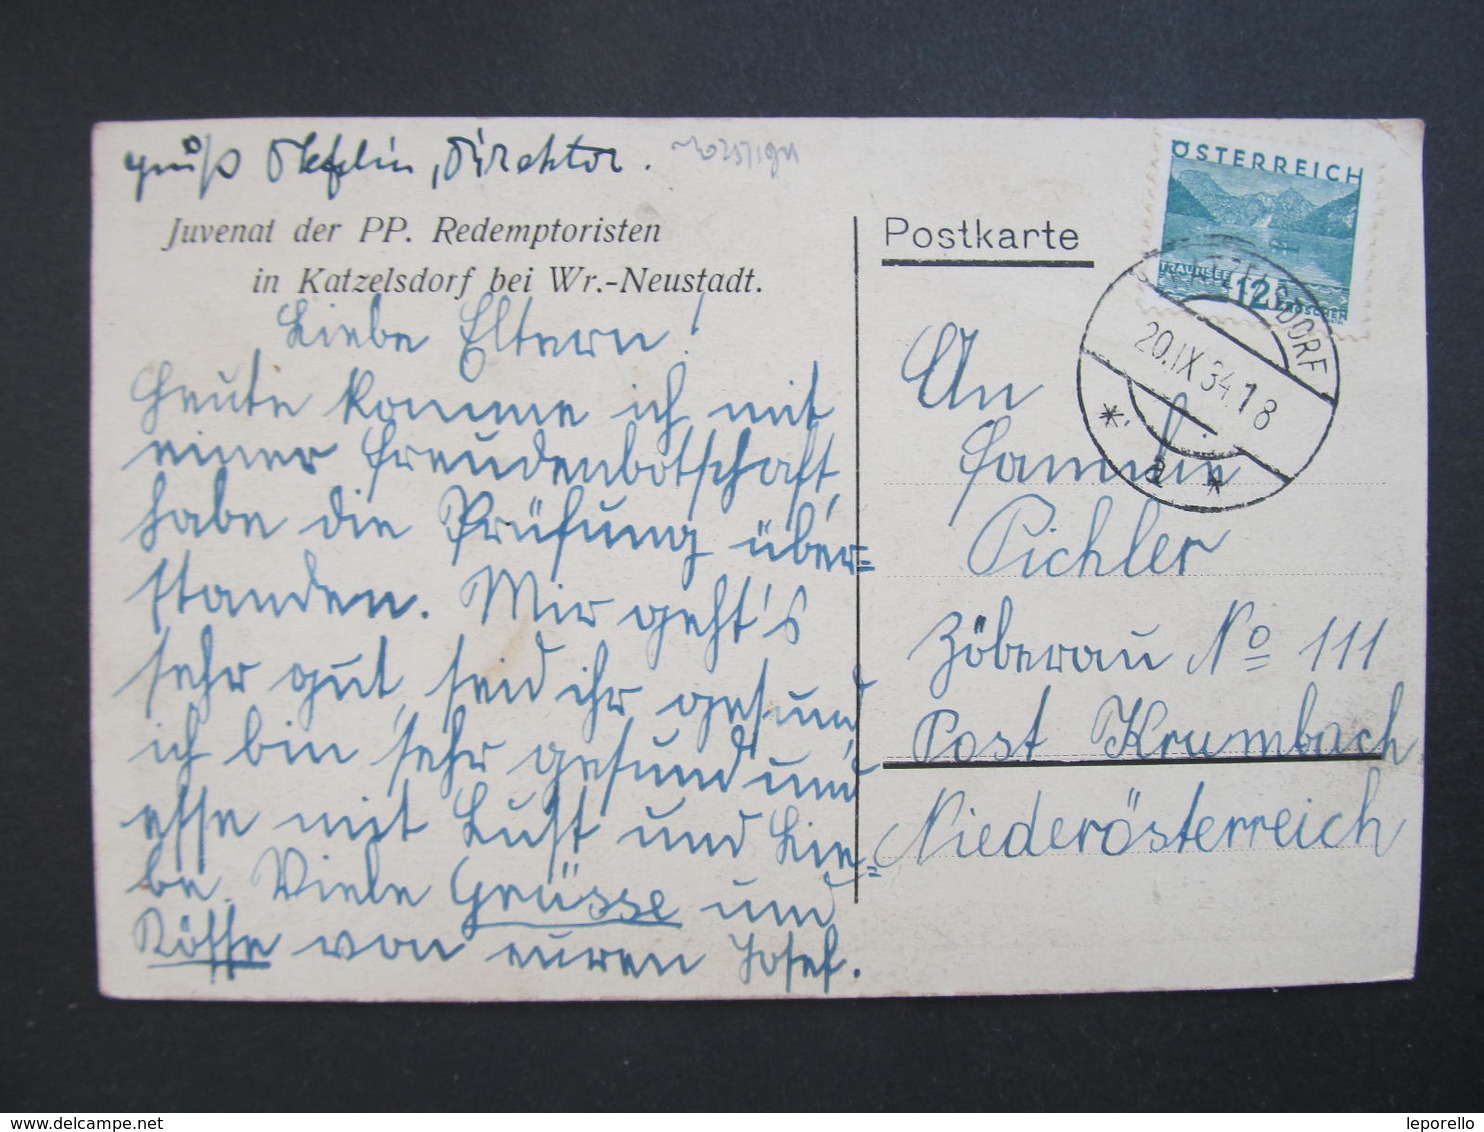 Gruß Direktor.
Juvenat der PP. Redemptoristen
in Katzelsdorf bei Wr.-Neustadt.
Liebe Eltern!
Heute komme ich mit
einer Freudenbotschaft,
habe die Prüfung über=
standen. Mir geht's
sehr gut, seid ihr gesund,
ich bin sehr gesund und
esse mit Lust und Lie=
be. Viele Grüsse und
Küsse von euren Josef.
Postkarte
ÖSTERREICH
TRAUNSEE
12 GROSCHEN
KATZELSDORF
20.IX.34.18
* a *
An
Familie
Pichler
Zöberau No 111
Post Krumbach
Niederösterreich
leporello